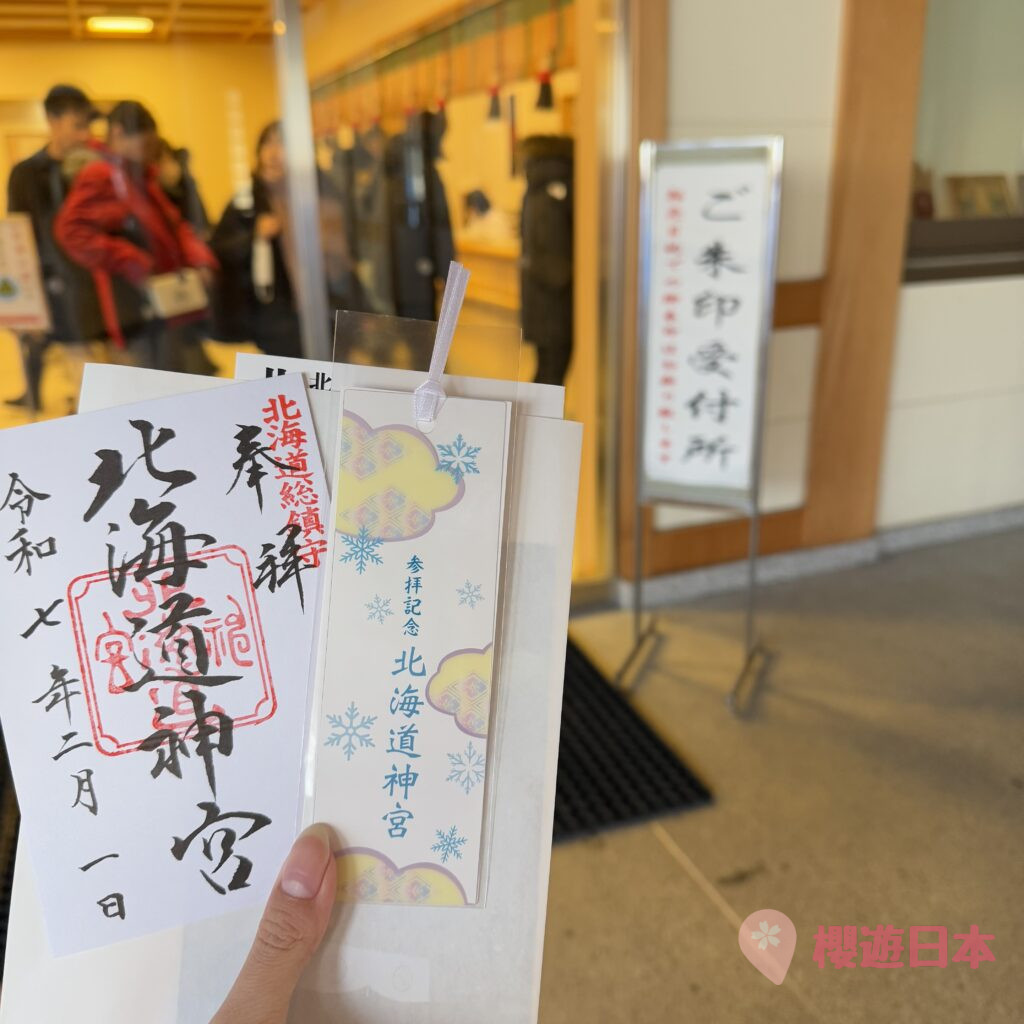 奉拝
北海道総鎮守
北海道神宮
令和七年二月一日
北
参拝記念
北海道神宮
ご朱印受付所
櫻遊日本